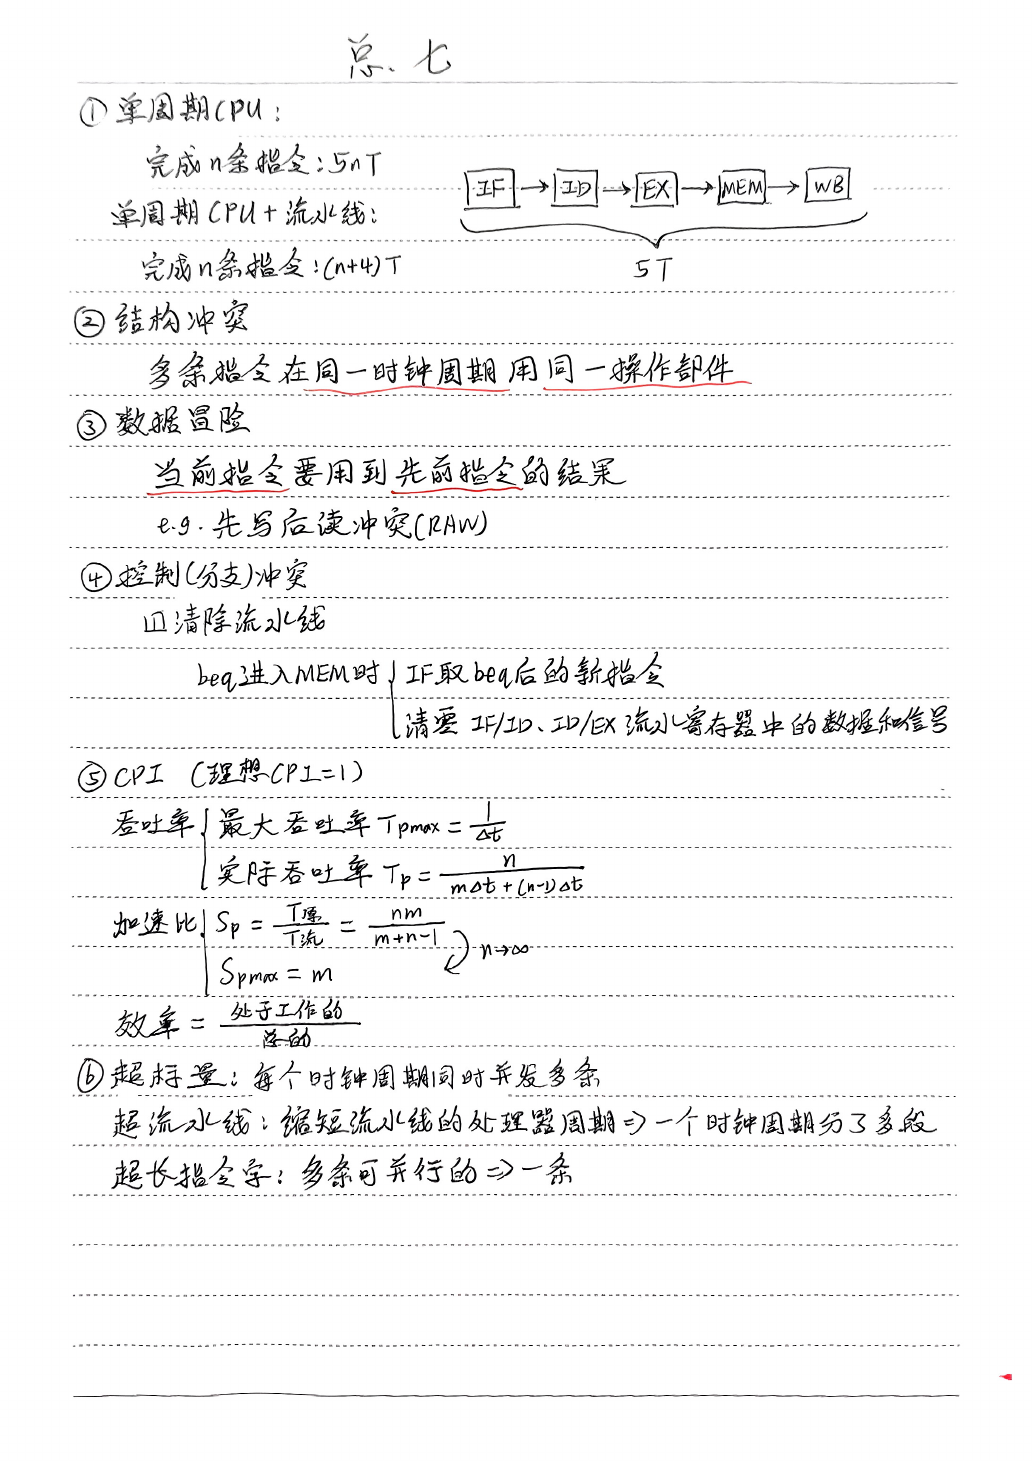 总.七
①单周期CPU:
完成n条指令:5nT
IF→ID→EX→MEM→WB
单周期CPU+流水线:
完成n条指令:(n+4)T
5T
②结构冲突
多条指令在同一时钟周期用同一操作部件
③数据冒险
当前指令要用到先前指令的结果
e.g.先写后读冲突(RAW)
④控制(分支)冲突
清除流水线
beq进入MEM时{IF取beq后的新指令
清零IF/ID、ID/EX流水寄存器中的数据和信号
⑤CPI (理想CPI=1)
吞吐率{最大吞吐率Tpmax=1/Δt
实际吞吐率Tp=n/(mΔt+(n-1)Δt)
加速比{Sp=T原/T流=nm/(m+n-1)
n→∞
Spmax=m
效率=处于工作的/总的
⑥超标量:每个时钟周期同时并发多条
超流水线:缩短流水线的处理器周期⇒一个时钟周期分了多段
超长指令字:多条可并行的⇒一条